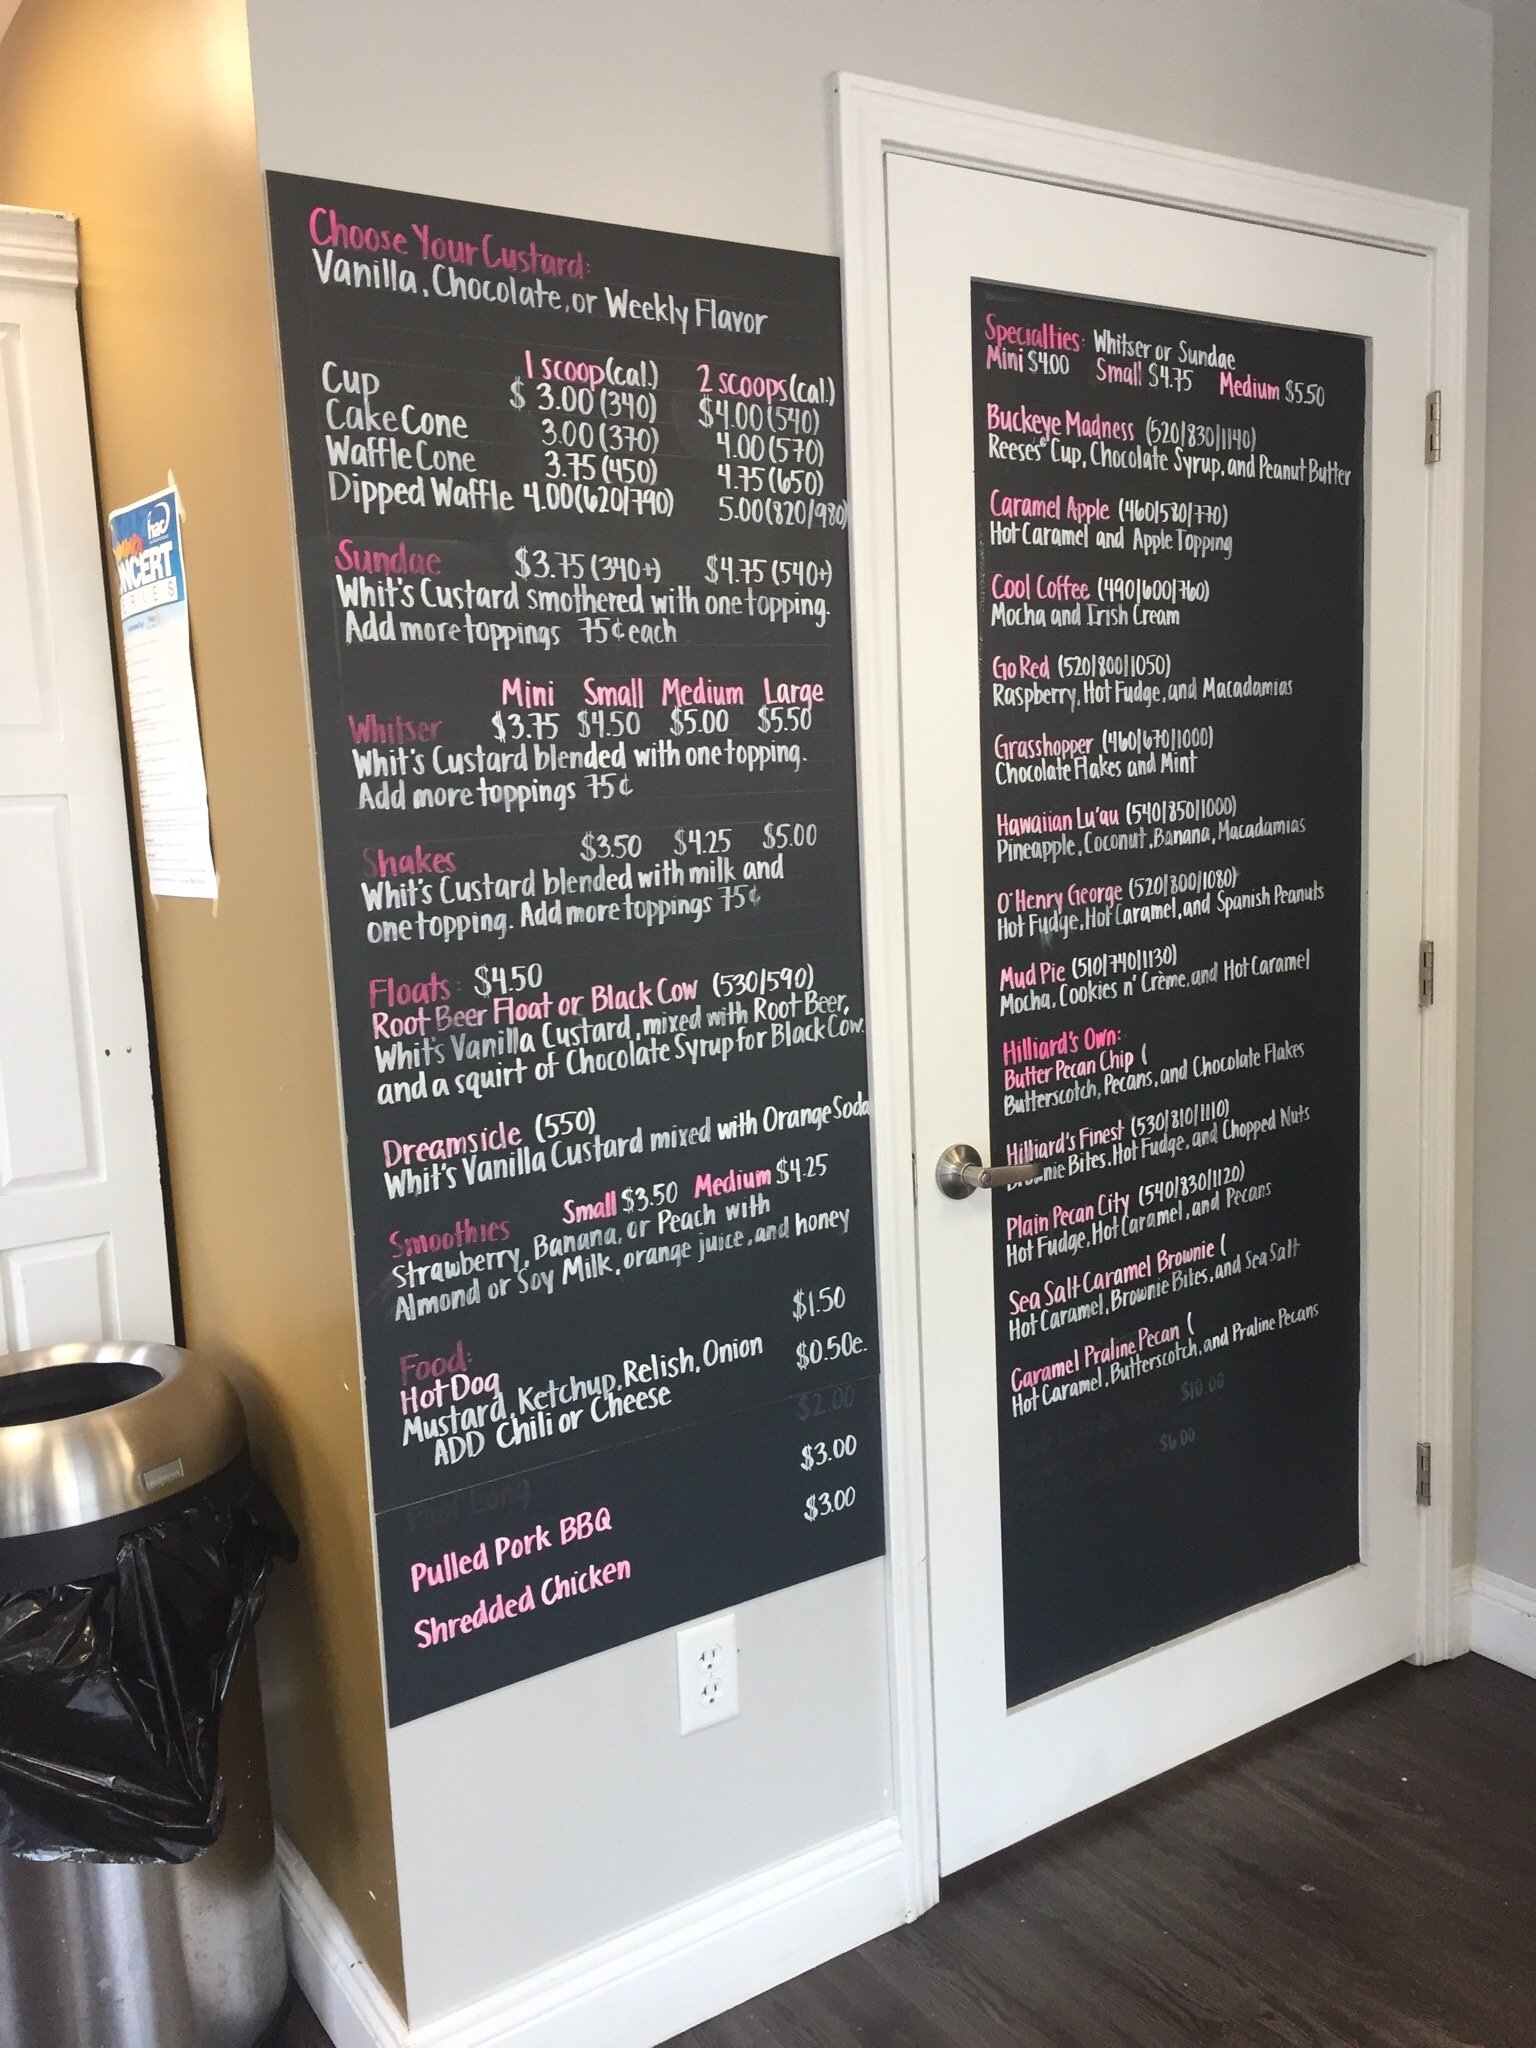 Choose Your Custard:
Vanilla, Chocolate, or Weekly Flavor
1 scoop (cal.) 2 scoops (cal.)
Cup $ 3.00 (340) $4.00 (540)
Cake Cone 3.00 (370) 4.00 (570)
Waffle Cone 3.75 (450) 4.75 (650)
Dipped Waffle 4.00 (620/790) 5.00 (820/980)
Sundae $3.75 (340+) $4.75 (540+)
Whit's Custard smothered with one topping.
Add more toppings 75¢ each
Mini Small Medium Large
Whitser $3.75 $4.50 $5.00 $5.50
Whit's Custard blended with one topping.
Add more toppings 75¢
Shakes $3.50 $4.25 $5.00
Whit's Custard blended with milk and
one topping. Add more toppings 75¢
Floats: $4.50
Root Beer Float or Black Cow (530/590)
Whit's Vanilla Custard, mixed with Root Beer,
and a squirt of Chocolate Syrup for Black Cow.
Dreamsicle (550)
Whit's Vanilla Custard mixed with Orange Soda
Small $3.50 Medium $4.25
Smoothies
Strawberry, Banana, or Peach with
Almond or Soy Milk, orange juice, and honey
Food:
Hot Dog $1.50
Mustard, Ketchup, Relish, Onion
ADD Chili or Cheese $0.50e.
$2.00
Pulled Pork BBQ $3.00
Shredded Chicken $3.00
Specialties: Whitser or Sundae
Mini $4.00 Small $4.75 Medium $5.50
Buckeye Madness (520/830/1140)
Reeses' Cup, Chocolate Syrup, and Peanut Butter
Caramel Apple (460/580/770)
Hot Caramel and Apple Topping
Cool Coffee (490/600/760)
Mocha and Irish Cream
Go Red (520/800/1050)
Raspberry, Hot Fudge, and Macadamias
Grasshopper (460/670/1000)
Chocolate Flakes and Mint
Hawaiian Lu'au (540/850/1000)
Pineapple, Coconut, Banana, Macadamias
O'Henry George (520/800/1080)
Hot Fudge, Hot Caramel, and Spanish Peanuts
Mud Pie (510/740/1130)
Mocha, Cookies n' Crème, and Hot Caramel
Hilliard's Own:
Butter Pecan Chip (
Butterscotch, Pecans, and Chocolate Flakes
Hilliard's Finest (530/810/1110)
Brownie Bites, Hot Fudge, and Chopped Nuts
Plain Pecan City (540/830/1120)
Hot Fudge, Hot Caramel, and Pecans
Sea Salt Caramel Brownie (
Hot Caramel, Brownie Bites, and Sea Salt
Caramel Praline Pecan (
Hot Caramel, Butterscotch, and Praline Pecans
$10.00
$6.00
hac